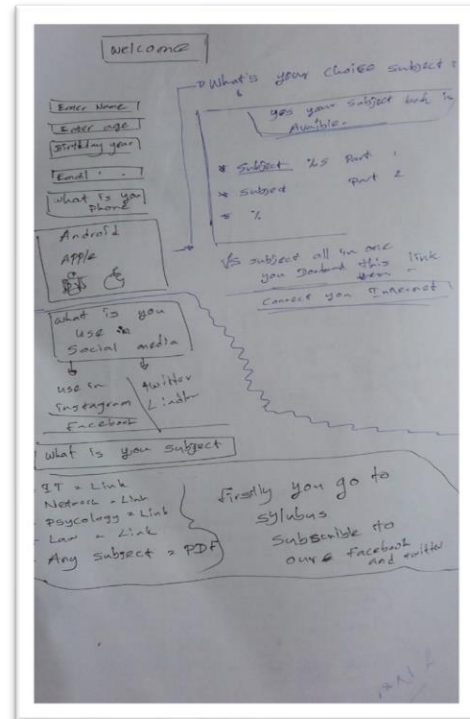 Welcome
Enter Name
Enter age
Birthday year
Email
What is you
Phone
Android
Apple
What is you
use
Social media
use in
instagram
Facebook
twitter
What is you subject
IT = Link
Network = Link
Psycology = Link
Law = Link
Any subject = PDF
What's your choise subject ?
yes your subject book is
Avaible.
* Subject %s Part 1
* Subject Part 2
* %
%s subject all in one
you this link
Connect you Internet
firstly you go to
sylubus
Subscrible to
oure facebook
and twitter